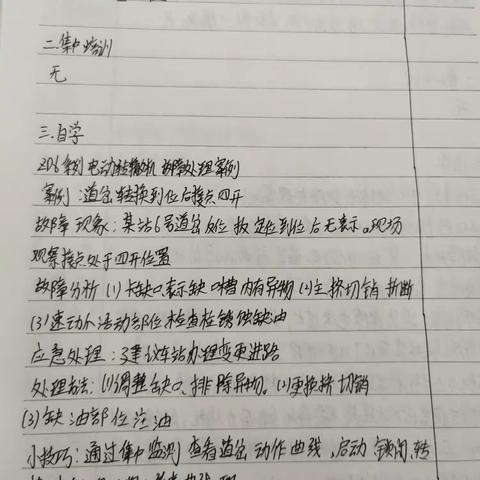 二.集中培训
无
三.自学
ZD6系列电动转辙机故障处理案例
案例:道岔转换到位后接点四开
故障现象:某站6号道岔反位扳定位到位后无表示。现场
观察接点处于四开位置
故障分析(1)卡缺口.表示缺口槽内有异物(2)主挤切销折断
(3)速动小活动部位检查柱锈蚀缺油
应急处理:建议车站办理变更进路
处理方法:(1)调整缺口、排除异物。(2)更换挤切销
(3)缺油部位注油
小技巧:通过集中监测查看道岔动作曲线,启动、锁闭、转